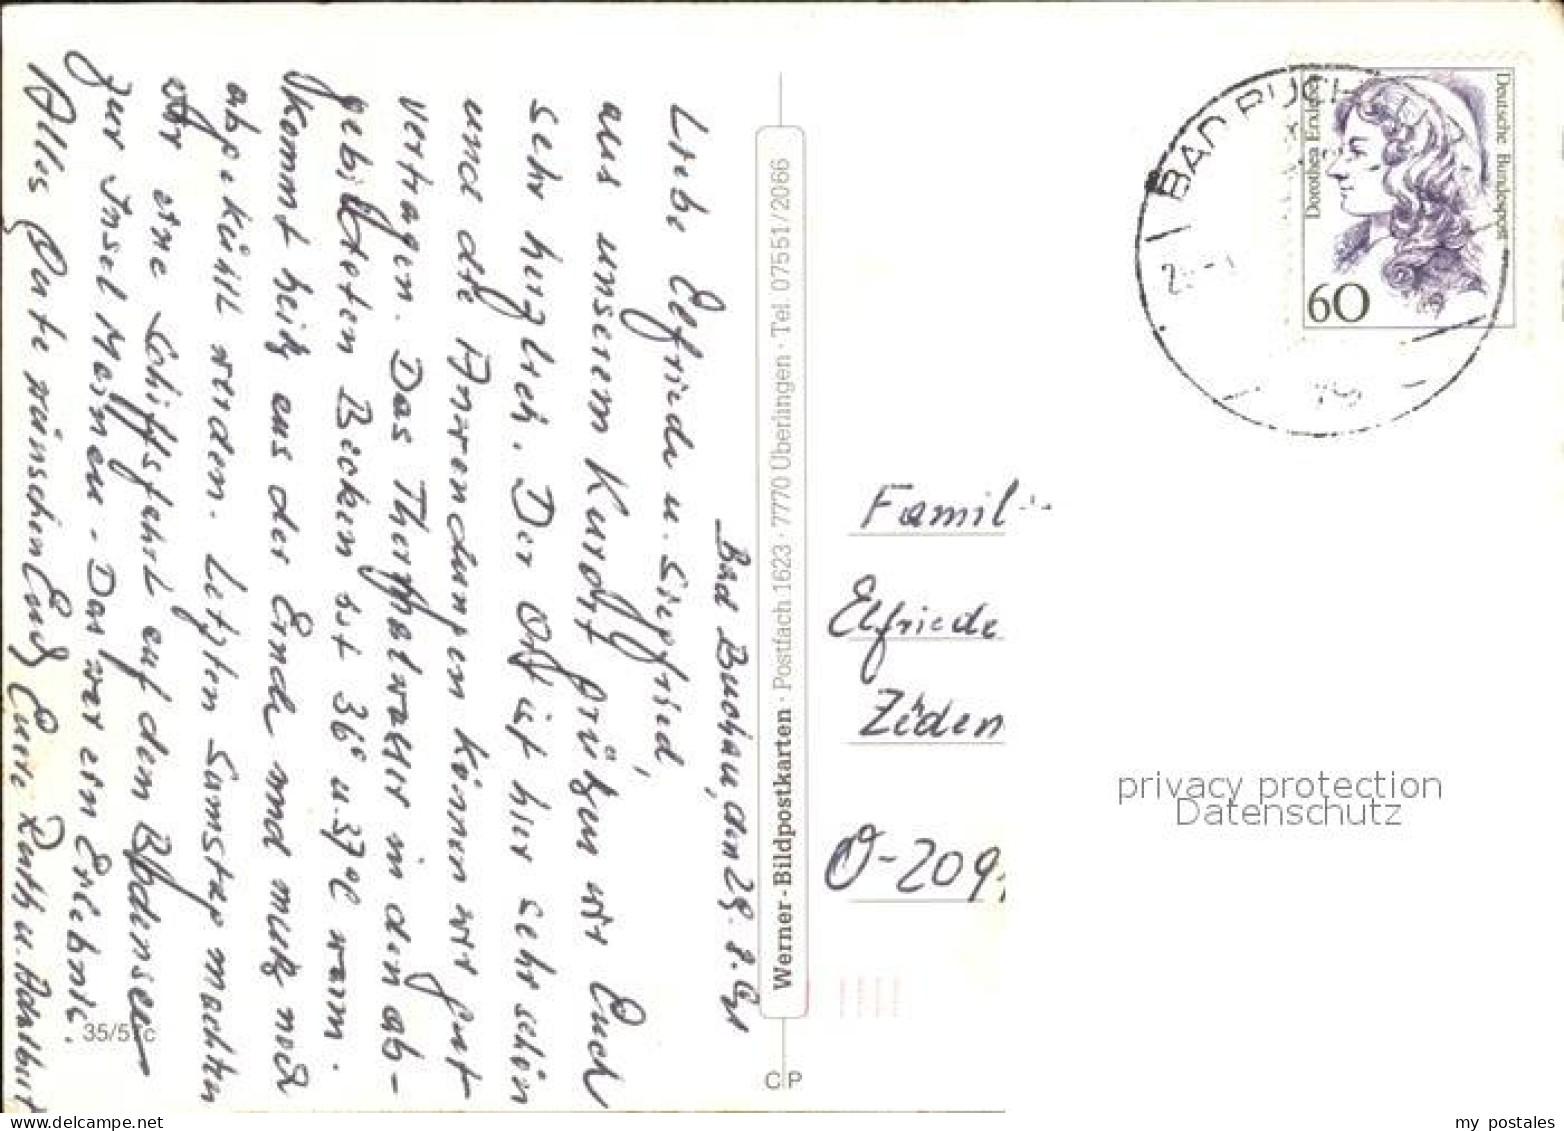 Bad Buchau, den 29. 8. 91
Liebe Elfriede u. Siegfried,
aus unserem Kurort grüßen wir Euch
sehr herzlich. Der Ort ist hier sehr schön
und die Anwendungen können wir gut
vertragen. Das Thermalwasser in den ab-
gebildeten Becken ist 36° u. 37°C warm.
kommt heiß aus der Erde und muß noch
abgekühlt werden. Letzten Samstag machten
wir eine Schiffsfahrt auf dem Bodensee
zur Insel Mainau. Das war ein Erlebnis.
Alles Gute wünschen Euch Eure Ruth u. Adalbert
35/57c
Werner-Bildpostkarten · Postfach 1623 · 7770 Überlingen · Tel. 07551/2066
C P
Deutsche Bundespost
Dorothea Erxleben
60
BAD BUCH
Famil
Elfriede
Zieden
O-209
privacy protection
Datenschutz
www.delcampe.net
my postales